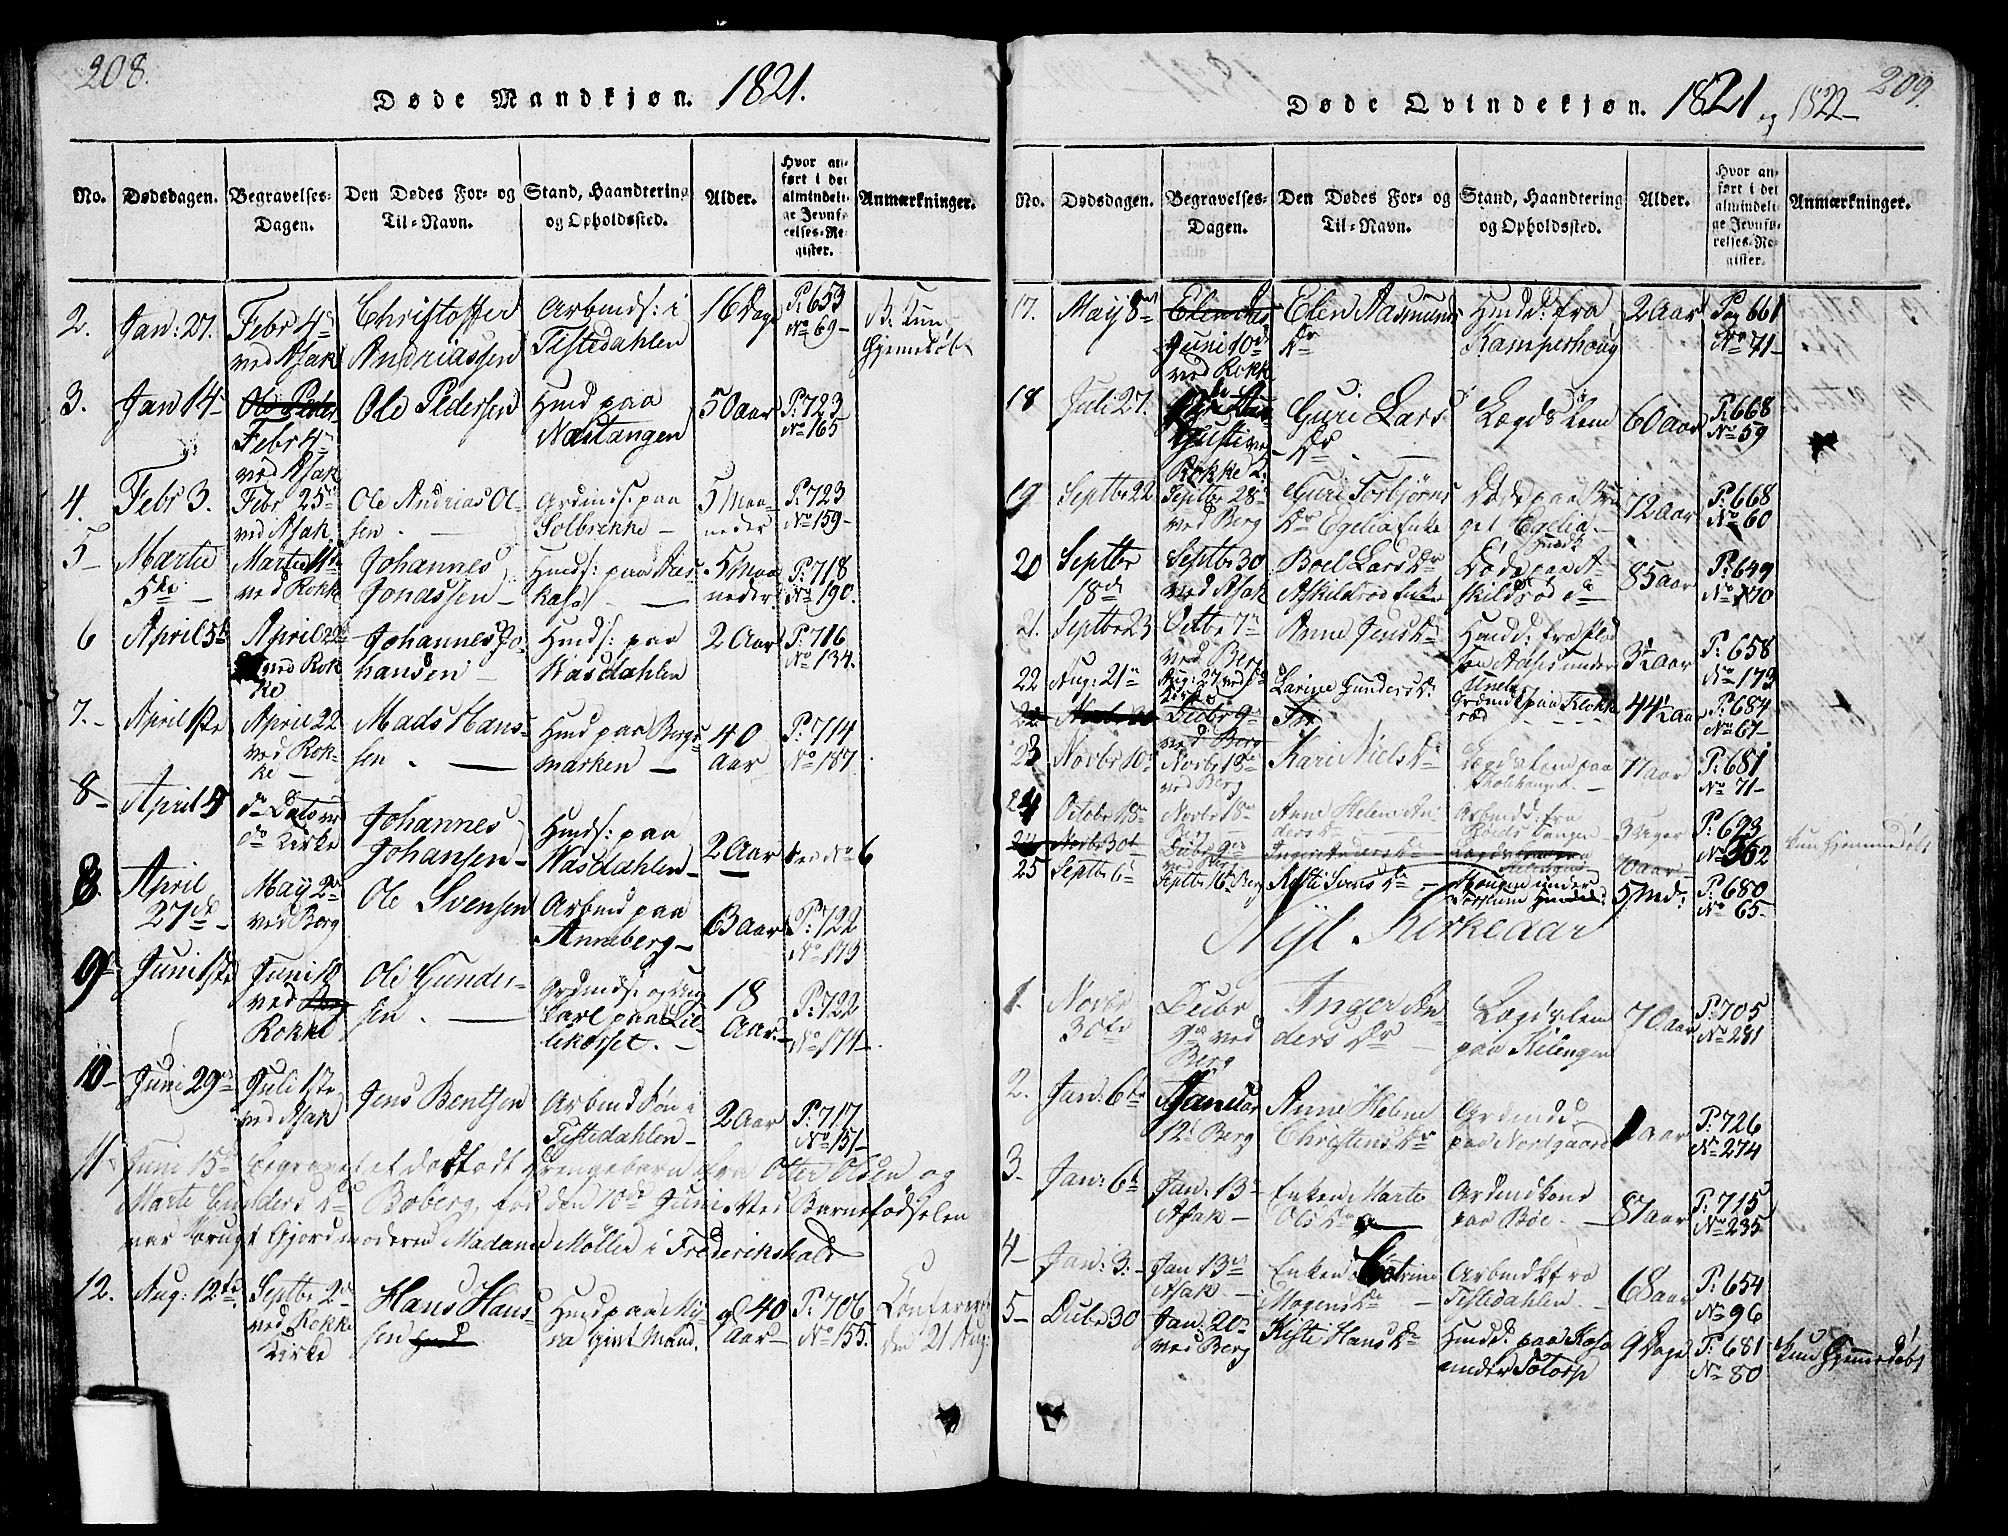 208.
Døde Mandkjøn. 1821.
No. Dødsdagen. Begravelses-Dagen. Den Dødes For- og Til-Navn. Stand, Haandtering og Opholdssted. Alder. Hvor anført i det almindelige Jevnførelses-Register. Anmærkninger.
2. Jan: 27. Febr 4de ved Asak Christoffer Andriassen Arbmds: i Tistedahlen 16 Dage P: 653 No 69 B: Kun Hjemedøbt
3. Jan 14 Ole Peder Febr 4de ved Asak Ole Pedersen Hmd paa Nastangen 50 Aar P: 723 No 165
4. Febr 3. Febr 25de ved Asak Ole Andrias Olsen Grdmds: paa Solbrekke 5 Maaneder P: 723 No 159
5 Martii 5te Martii ved Rokke Johannes Jonassen Hmds: paa 5 Maaneder P: 718 No 190.
6 April 5te April ved Rokke Johannes Johansen Hmds: paa Wasdahlen 2 Aar P: 716 No 134.
7. April 1ste April 22 ved Rokke Mads Hanssen Hmd paa Bergsmarken 40 Aar P: 714 No 187
8 April 5 do Dato ved do Kirke Johannes Johansen Hmds: paa Wasdahlen 2 Aar ved No 6
8. April 27de May 2den ved Berg Ole Svensen Arbmd paa Anneberg 63 Aar P: 722 No 173
9 Juni 1ste Juni 10 ved Rokke Ole Gundersen Grdmds: og Ungkarl paa Lillekasset. 18 Aar. P: 722 No 174
10 Juni 29de Juli 1ste ved Asak Jens Bentsen Arbmd Søn i Tistedahlen 2 Aar P: 717 No 151
11 Juni 15de Begravet et dødfødt Drengebarn fra Otter Olsen og
Marte Gunders Dr Boberg, fød den 10de Juni. Ved Barnefødselen
var brugt Gjordmoderen Madame Møller i Frederikshald
12. Aug: 12te Septbr 2den ved Rokke Kirke Hans Hanssen Hmd paa givt Mand. 40 Aar P: 706 No 155. Confereres den 21 Aug:
209.
Døde Qvindekjøn. 1821 og 1822
No. Dødsdagen. Begravelses-Dagen. Den Dødes For- og Til-Navn. Stand, Haandtering og Opholdssted. Alder. Hvor anført i det almindelige Jevnførelses-Register. Anmærkninger.
17. May 8de Juni 10de ved Rokke Elen Aasmunds Dr Hmdd: fra Kamperhoug 2 Aar Pag 661 No 71
18 Juli 27. Augusti ved Rokke Guri Lars Dr Lægdslem 60 Aar P: 668 No 59
19 Septbr 22 Septbr 28de ved Berg Guri Torbjørns Dr Egelia Enke Død paa Egelia 72 Aar P: 668 No 60
20 Septbr 18de Septbr 30 ved Asak Boel Lars Dr Askildrød Enke Død paa Askildrød 85 Aar P: 649 No 170
21. Septbr 23 Octbr 7de ved Berg Anne Jens Dr Hmdd: fra under 3½ Aar P: 658 No 173
22 Aug: 21de Aug: 27 ved Kirke Larine Gunders Dr Grdmd paa Klokkerød 4½ Aar P: 684 No 67
23 Novbr 10de Novbr 18de ved Berg Kari Niels Dr Lægdslem paa 77 Aar P: 681 No 71
24 Octobr 18de Novbr 18de Berg Anne Helene Anders Dr Arbmdd: fra 3 Uger P: 693 No 362 Kun Hjemmedøbt
25 Septbr 6te Septbr 16de Berg Kisti Svens Dr under Torpum 5 Md: P: 680 No 65
Nyt Kirkeaar
1. Novbr 30te Decbr 9de ved Berg Inger Anders Dr Lægdslem paa Kilengen 70 Aar P: 705 No 281
2. Jan: 6te Januar 12te Berg Anne Helene Christens Dr Grdmdd: paa Nordgaard 1 Aar P: 726 No 274
3. Jan: 6te Jan: 13 Asak Enken Marte Ols Dr Grdmdkone paa Bøe 87 Aar P: 715 No 235
4 Jan: 3. Jan 13de Asak Enken Catrine Mogens Dr Arbmdk fra Tistedahlen 68 Aar P: 654 No 96
5 Decbr 30 Jan: 20de ved Berg Kisti Hans Dr Hmdd: paa Kaso under Sotorp 9 Dage P: 681 No 80 Kun Hjemmedøbt